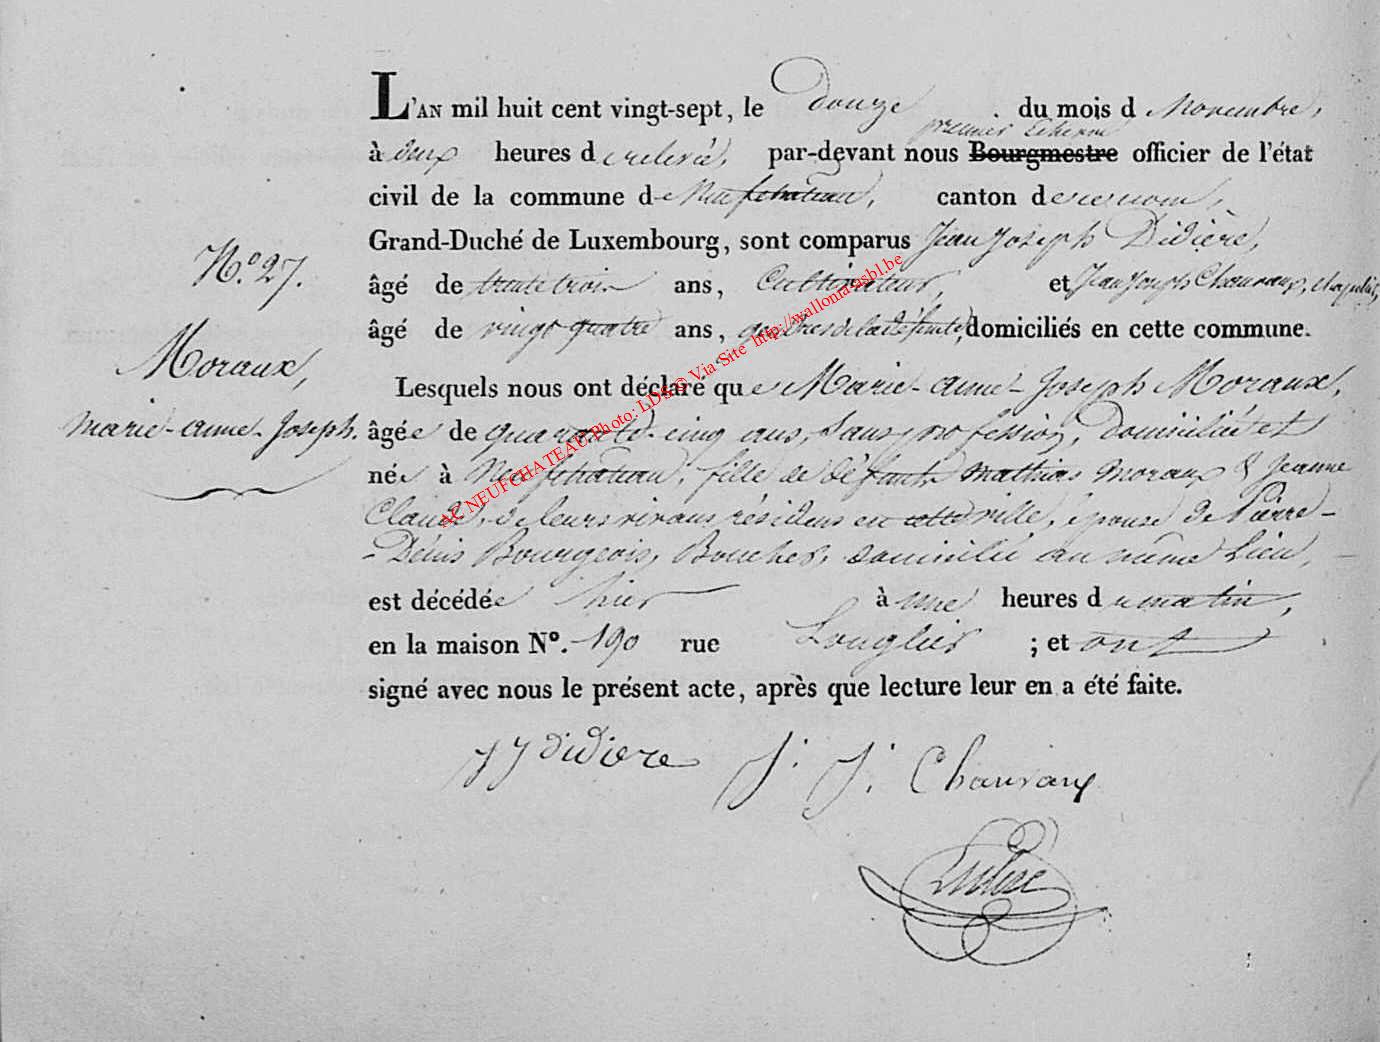 L'AN mil huit cent vingt-sept, le douze du mois de Novembre,
premier Echevin
à deux heures de relevée, par-devant nous Bourgmestre officier de l'état
civil de la commune de Neufchateau, canton de ce nom,
Grand-Duché de Luxembourg, sont comparus Jean Joseph Didière,
N.° 27.
âgé de trente trois ans, Cultivateur, et Jean Joseph Chauvaux, chapelier,
âgé de vingt quatre ans, gendres de la défunte, domiciliés en cette commune.
Moraux,
Lesquels nous ont déclaré que Marie-anne-Joseph Moraux,
marie-anne-Joseph.
âgée de quarante-cinq ans, sans profession, domiciliée et
née à Neufchateau, fille de défunts Mathias Moraux & Jeanne
Claude, de leurs vivans résidens en cette ville, épouse de Pierre-
-Dénis Bourgeois, Boucher, domicilié au même lieu,
est décédée hier à une heures du matin,
en la maison N°. 190 rue Longlier ; et ont
signé avec nous le présent acte, après que lecture leur en a été faite.
JJ didiere J. J. Chauvaux
AC NEUFCHATEAU Photo: LDS © Via Site http://wallonia-asbl.be